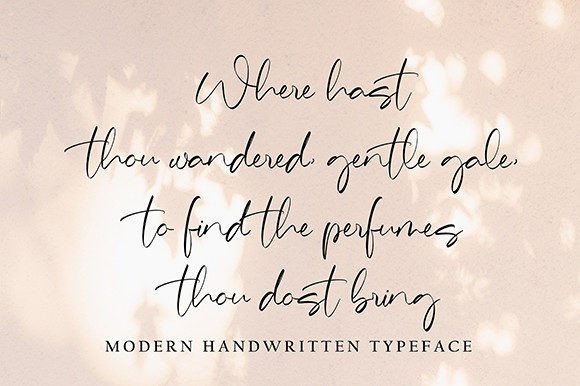 Where hast
thou wandered, gentle gale,
to find the perfumes
thou dost bring
MODERN HANDWRITTEN TYPEFACE